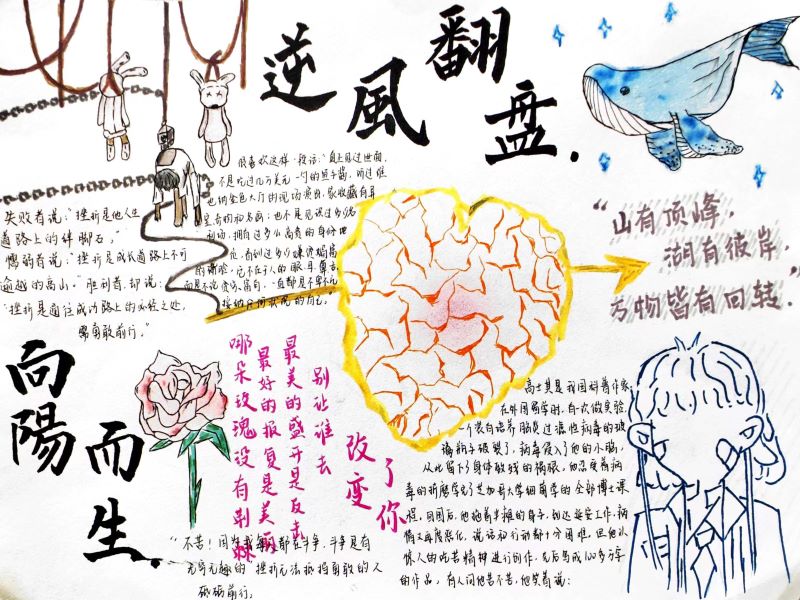 逆風翻盘.
失败者说:“挫折是他人生
道路上的绊脚石,”
懦弱者说:“挫折是成长道路上不可
逾越的高山。”胜利者却说:
“挫折是通往成功路上的必经之处,
需勇敢前行,”
很喜欢这样一段话:“真正见过世面,
“山有顶峰,
湖有彼岸,
万物皆有回转.”
向陽而生.
别让谁去
改变
了你
最美的盛开是反击
最好的报复是美丽
哪朵玫瑰没有荆棘
高士其是我国科普作家,
在外国留学时,有一次做实验,
一个装有培养脑炎过滤性病毒的玻
璃瓶子破裂了,病毒侵入了他的小脑,
从此留下了身体致残的祸根,他忍受着病
毒的折磨学完了芝加哥大学细菌学的全部博士课
程。回国后,他拖着半瘫的身子,到达延安工作,病
情又再度恶化,说话和行动都十分困难,但他以
惊人的吃苦精神进行创作,先后写成100多万字
的作品,有人问他苦不苦,他笑着说:
“不苦!因为我每天都在斗争,斗争是有
无穷无趣的,挫折无法抵挡勇敢的人
砥砺前行,